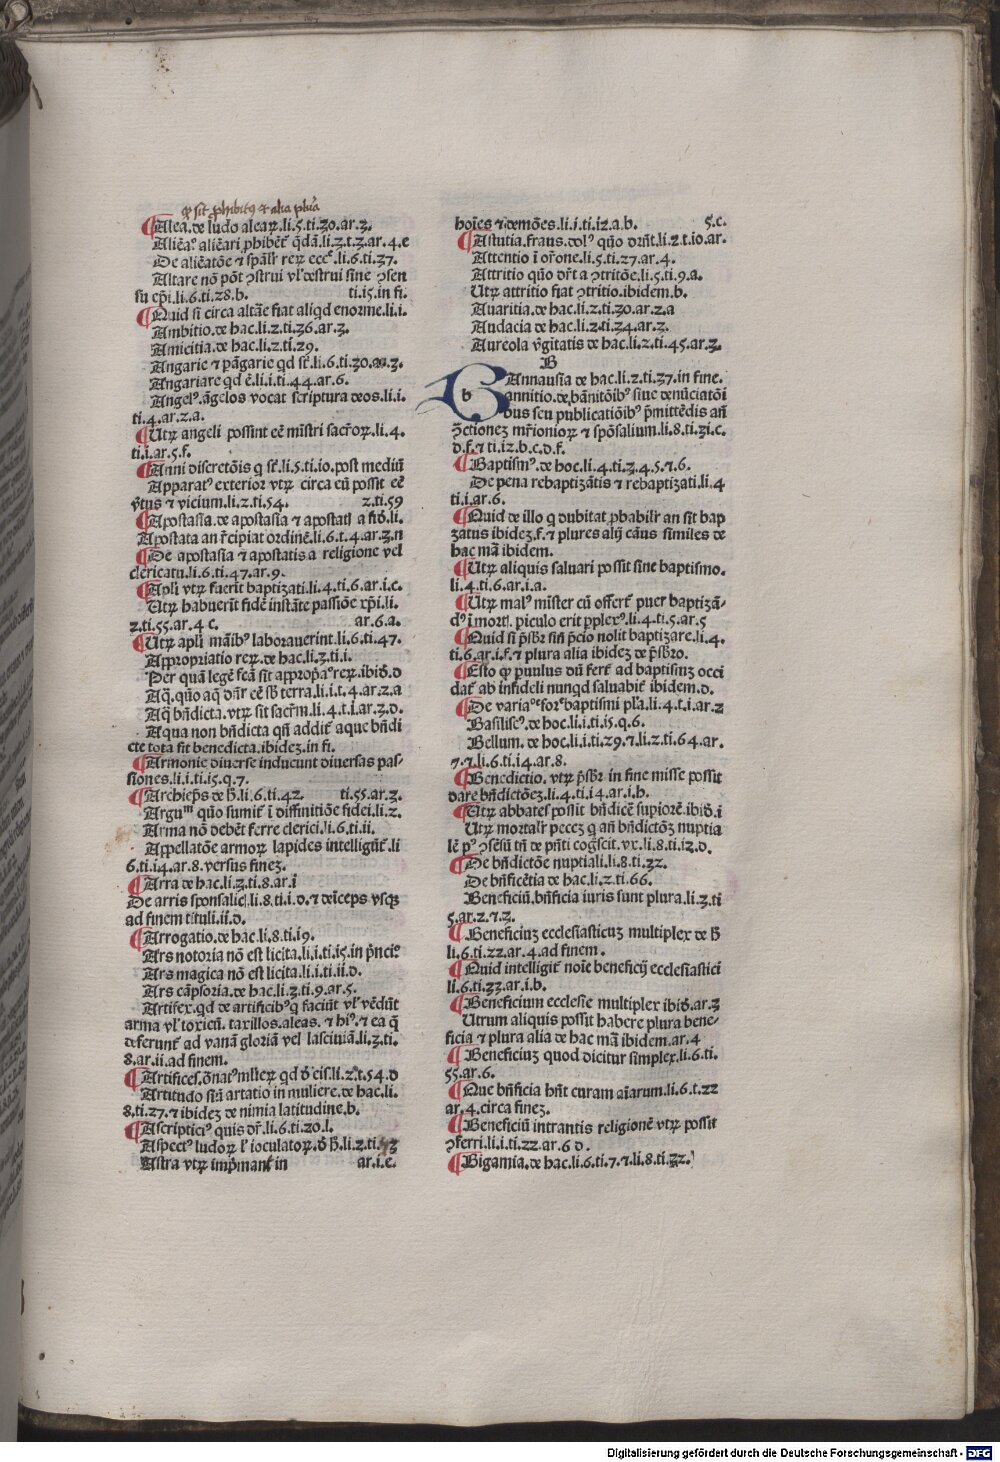 Alea.de ludo aleaꝝ.li.5.ti.30.ar.3.
Aliēaꝰ aliēari ꝓhibēt᷑ qͥdā.li.3.t.3.ar.4.e
De aliēatōe ⁊ spālīr reꝝ eccē.li.6.ti.37.
Altare nō pōt ꝯstrui vl' destrui sine ꝯsen
su ep̄i.li.6.ti.28.b. ti.15.in fi.
Quid si circa altāe fiat aliqͥd enorme.li.i.
Ambitio.de hac.li.2.ti.36.ar.3.
Amicitia.de hac.li.2.ti.29.
Angarie ⁊ pāgarie qd sūt.li.6.ti.30.ar.3.
Angariare qd ē.li.i.ti.44.ar.6.
Angelꝰ.āgelos vocat scriptura deos.li.i.
ti.4.ar.2.a.
Utꝝ angeli possint eē mīstri sacr̄oꝝ.li.4.
ti.i.ar.5.f.
Anni discretōis q sūt.li.5.ti.10.post mediū
Apparatꝰ exterior vtꝝ circa eū possit eē
v̄tus ⁊ vicium.li.2.ti.54. 2.ti.59
Apostasia.de apostasia ⁊ apostatis a fide.li.
Apostata an r̄cipiat ordinē.li.6.t.4.ar.3.n
De apostasia ⁊ apostatis a religione vel
clericatu.li.6.ti.47.ar.9.
Apl'i vtꝝ fuerīt baptizati.li.4.ti.6.ar.i.c.
Utꝝ habuerūt fidē instāte passiōe xp̄i.li.
2.ti.55.ar.4 c. ar.6.a.
Utꝝ apl'i māibꝰ laborauerint.li.6.ti.47.
Appropriatio reꝝ.de hac.li.3.ti.i.
Per quā legē fcā sit appropaͦ reꝝ.ibid.d
Aq̄.quō aq̄ dr̄ eē sb' terra.li.i.t.4.ar.2.a
Aq̄ bn̄dicta.vtꝝ sit sacr̄m.li.4.t.i.ar.3.d.
Aqua non bn̄dicta qn̄ addit᷑ aque bn̄di
cte tota sit benedicta.ibidez.in fi.
Armonie diuerse inducunt diuersas pas-
siones.li.i.ti.15.q.7.
Archiep̄s de h̄.li.6.ti.42. ti.55.ar.3.
Arguᵐ quō sumit᷑ ī diffinitiōe fidei.li.2.
Arma nō debēt ferre clerici.li.6.ti.ii.
Appellatōe armoꝝ lapides intelligūt᷑.li
6.ti.14.ar.8.versus finez.
Arra de hac.li.3.ti.8.ar.i
De arris sponsalic.li.8.ti.i.d.⁊ deīceps vsqꝫ
ad finem tituli.ii.d.
Arrogatio.de hac.li.8.ti.19.
Ars notoria nō est licita.li.i.ti.15.in p̄ncīͦ
Ars magica nō est licita.li.i.ti.ii.d.
Ars cāpsoria.de hac.li.3.ti.9.ar.5.
Artifex.qd de artificibꝰ q faciūt vl' vēdūt
arma vl' toxicū.taxillos.aleas.⁊ hiꝰ.⁊ ea q̄
deferunt᷑ ad vanā gloriā vel lasciuiā.li.3.ti.
8.ar.ii.ad finem.
Artifices.ōnatꝰ mlīeꝝ qd d' eis.li.2.t.54.d
Artitudo siū artatio in muliere.de hac.li.
8.ti.27.⁊ ibidez de nimia latitudine.b.
Ascripticiꝰ quis dr̄.li.6.ti.20.l.
Aspectꝰ ludoꝝ l' ioculatoꝝ.d' h̄.li.2.ti.
Astra vtꝝ imp̄mant in ar.i.e.
hoīes ⁊ demōes.li.i.ti.12.a.b. 5.c.
Astutia.fraus.dolꝰ quō dr̄nt.li.2.t.10.ar.
Attentio ī or̄one.li.5.ti.27.ar.4.
Attritio quō dr̄t a ꝯtritōe.li.5.ti.9.a.
Utꝝ attritio fiat ꝯtritio.ibidem.b.
Avaritia.de hac.li.2.ti.30.ar.2.a
Audacia de hac.li.2.ti.34.ar.3.
Aureola v̄gitatis de hac.li.2.ti.45.ar.3.
B
Bannausia de hac.li.2.ti.37.in fine.
annitio.de bānitōibꝰ siue denūciatōi
bus seu publicatiōibꝰ p̄mittēdis an̄
ꝯtctionez mr̄ionioꝝ ⁊ spōsalium.li.8.ti.31.c.
d.f.⁊ ti.12.b.c.d.f.
Baptismꝰ.de hoc.li.4.ti.3.4.5.⁊.6.
De pena rebaptizātis ⁊ rebaptizati.li.4
ti.i.ar.6.
Quid de illo q dubitat ꝓbabilīr an sit bap
zatus ibidez.f.⁊ plures alij cāus similes de
hac mā ibidem.
Utꝝ aliquis saluari possit sine baptismo.
li.4.ti.6.ar.i.a.
Utꝝ malꝰ mīster cū offert᷑ puer baptizā-
dꝰ ī mortl' piculo erit pplexꝰ.li.4.ti.5.ar.5
Quid si p̄sbr̄ sin̄ p̄cio nolit baptizare.li.4.
ti.6.ar.i.f.⁊ plura alia ibidez de p̄sbr̄o.
Esto ꝙ puulus dū fert᷑ ad baptismz occi
dat᷑ ab infideli nunqd saluabit᷑ ibidem.d.
De varia for̄e baptismi pl'a.li.4.t.i.ar.2
Basiliscꝰ.de hoc.li.i.ti.15.q.6.
Bellum.de hoc.li.i.ti.29.⁊.li.2.ti.64.ar.
7.⁊.li.6.ti.14.ar.8.
Benedictio.vtꝝ p̄sbr̄ in fine misse possit
dare bn̄dictōez.li.4.ti.14.ar.i.h.
Utꝝ abbates possit bn̄dicē supiorē.ibid.i
Utꝝ mortalr̄ peccz q an̄ bn̄dictōz nuptia
lē pͥ ꝯsēsū tn̄ de pn̄ti cogscit.vx.li.8.ti.12.d.
De bn̄dictōe nuptiali.li.8.ti.32.
De bn̄ficētia de hac.li.2.ti.66.
Beneficiū.bn̄ficia iuris sunt plura.li.3.ti
5.ar.2.⁊.3.
Beneficiuz ecclesiasticuz multiplex de h̄
li.6.ti.22.ar.4.ad finem.
Quid intelligit᷑ noīe beneficij ecclesiastici
li.6.ti.33.ar.i.b.
Beneficium ecclesie multiplex ibid.ar.3
Utrum aliquis possit habere plura bene-
ficia ⁊ plura alia de hac mā ibidem.ar.4
Beneficiuz quod dicitur simplex.li.6.ti.
55.ar.6.
Que bn̄ficia hn̄t curam aīarum.li.6.t.22
ar.4.circa finez.
Beneficiū intrantis religionē vtꝝ possit
ꝯferri.li.i.ti.22.ar.6 d.
Bigamia.de hac.li.6.ti.7.⁊.li.8.ti.32.
Digitalisierung gefördert durch die Deutsche Forschungsgemeinschaft - DFG